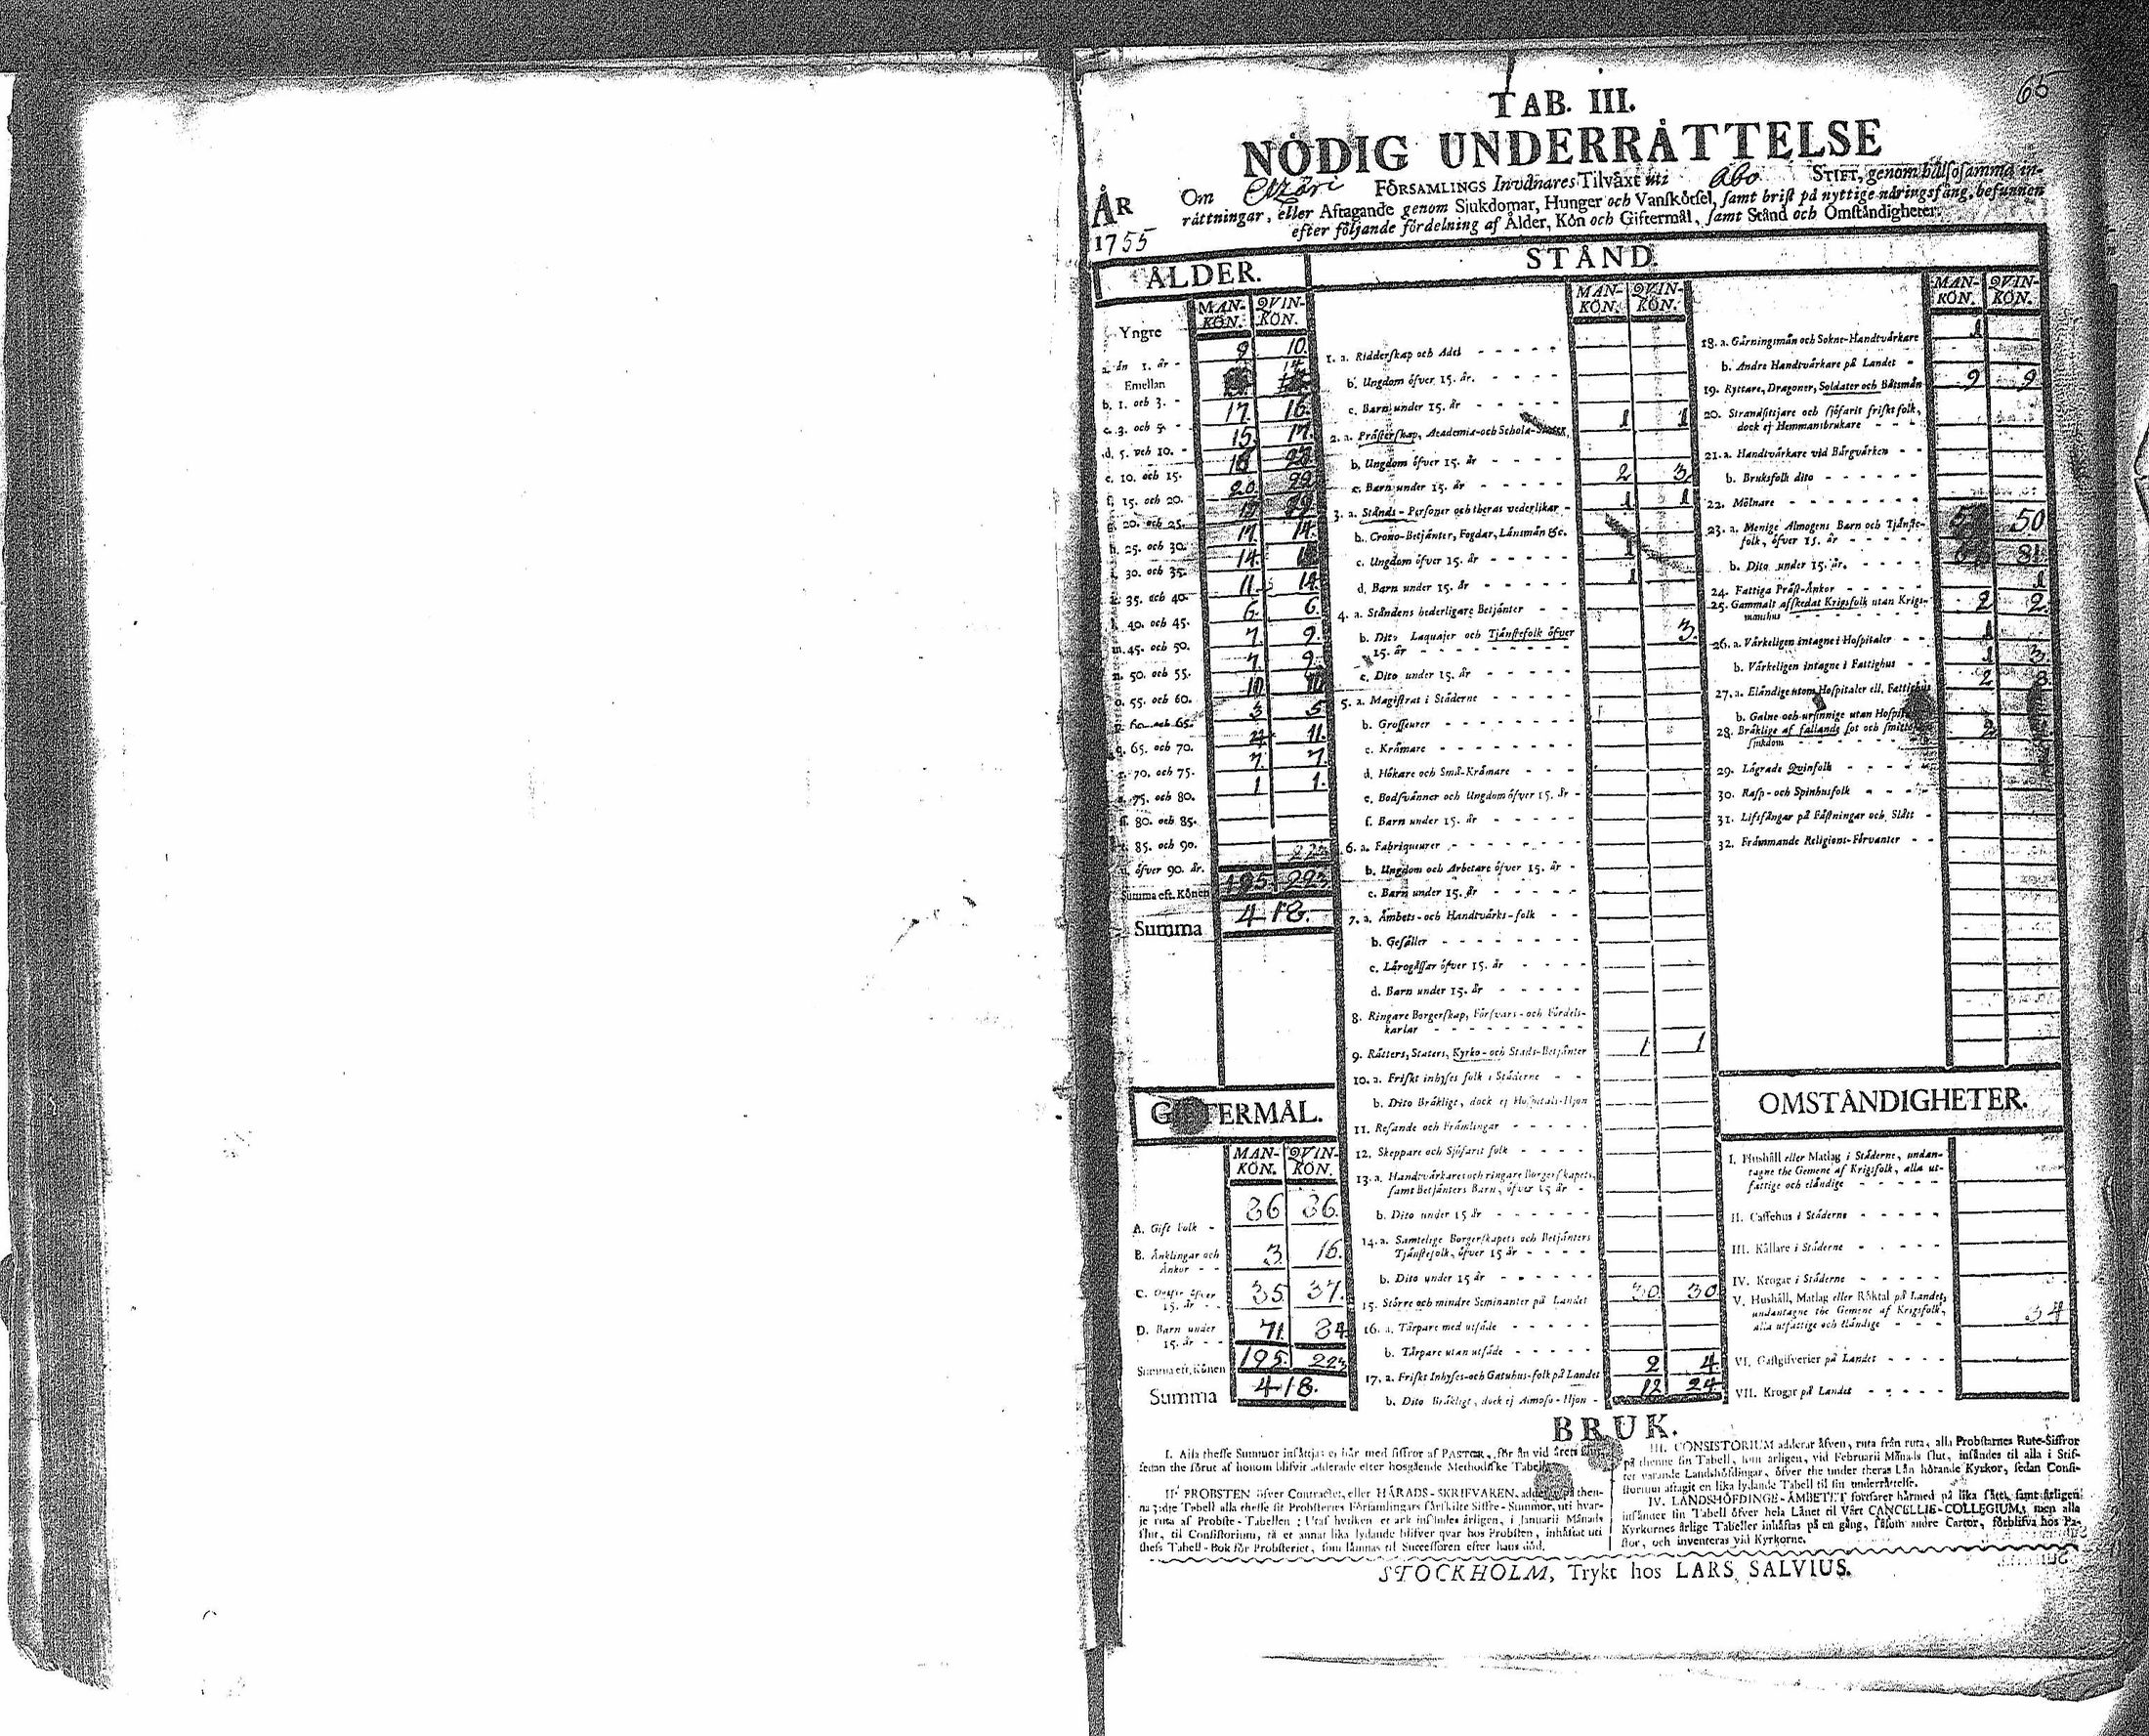 65
TAB. III.
NÖDIG UNDERRÅTTELSE
ÅR 1755
Om Etzäri FÖRSAMLINGS Invånares Tilväxt uti Åbo STIFT, genom hälsosamma in-
råttningar, eller Aftagande genom Siukdomar, Hunger och Vanskötsel, samt brist på nyttige näringsfång, befunnen
efter följande fördelning af Ålder, Kön och Giftermål, samt Stånd och Omståndigheter.
ÅLDER.
MAN-KÖN. QVIN-KÖN.
Yngre
a. än 1. år - 9 10.
Emellan
b. 1. och 3. - 14
c. 3. och 5. - 17 16.
d. 5. och 10. - 15 17.
e. 10. och 15. 18
f. 15. och 20. 20 22
g. 20. och 25.
h. 25. och 30. 17 14.
i. 30. och 35. 14.
k. 35. och 40. 11 14.
l. 40. och 45. 6. 6.
m. 45. och 50. 7 9.
n. 50. och 55. 7. 9.
o. 55. och 60.
p. 60. och 65. 3 5
q. 65. och 70. 11.
r. 70. och 75. 7. 7
s. 75. och 80. 1 1.
ſ. 80. och 85.
t. 85. och 90.
u. öfver 90. år.
Summa eft. Könen 195. 223
Summa 418.
GIFTERMÅL.
MAN-KÖN. QVIN-KÖN.
A. Gift Folk - 86 86.
B. Änklingar och
Änkor - - 3. 16.
C. Ogifte öfver
15. år - - 35 37.
D. Barn under
15. år - - 71. 84
Summa eft. Könen 195. 223
Summa 418.
STÅND.
MAN-KÖN. QVIN-KÖN.
1. a. Ridderskap och Adel
b. Ungdom öfver 15. år.
c. Barn under 15. år
2. a. Prästerskap, Academie-och Schola-Staten, 1 1
b. Ungdom öfver 15. år
c. Barn under 15. år 2 3
3. a. Stånds-Personer och theras vederlikar - 1 1
b. Crono-Betjänter, Fogdar, Länsmän &c.
c. Ungdom öfver 15. år 1
d. Barn under 15. år 1
4. a. Ståndens hederligare Betjänter
b. Dito Laquajer och Tjänstefolk öfver
15. år 3.
c. Dito under 15. år
5. a. Magistrat i Städerne
b. Grosseurer
c. Krämare
d. Hökare och Små-Krämare
e. Bodsvänner och Ungdom öfver 15. år -
f. Barn under 15. år
6. a. Fabriqueurer
b. Ungdom och Arbetare öfver 15. år -
c. Barn under 15. år
7. a. Ämbets-och Handtvärks-folk
b. Gesäller
c. Lärogåssar öfver 15. år
d. Barn under 15. år
8. Ringare Borgerskap, Försvars-och Värdels-
karlar
9. Rätters, Staters, Kyrko-och Stads-Betjänter 1 1
10. a. Friskt inhyses folk i Städerne
b. Dito Bräkligt, dock ej Hospitals-Hjon
11. Resande och Främlingar
12. Skeppare och Sjöfarit folk
13. a. Handtvärkares och ringare Borgerskapets,
samt Betjänters Barn, öfver 15 år
b. Dito under 15 år
14. a. Samtelige Borgerskapets och Betjänters
Tjänstefolk, öfver 15 år
b. Dito under 15 år
15. Större och mindre Seminanter på Landet 30 30
16. a. Torpare med utsäde
b. Torpare utan utsäde
17. a. Friskt Inhyses-och Gatuhus-folk på Landet 2 4
b. Dito Bräkligt, dock ej Almoso-Hjon - 12 24
MAN-KÖN. QVIN-KÖN.
18. a. Gärningsmän och Sokne-Handtvärkare 1
b. Andre Handtvärkare på Landet
19. Ryttare, Dragoner, Soldater och Båtsmän 9 9
20. Strandsittjare och sjöfarit friskt folk,
dock ej Hemmansbrukare
21. a. Handtvärkare vid Bärgvärken
b. Bruksfolk dito
22. Mölnare
23. a. Menige Almogens Barn och Tjänste-
folk, öfver 15. år 50
b. Dito under 15. år. 81
24. Fattiga Präst-Änkor 1
25. Gammalt afskedat Krigsfolk utan Krigs-
manshus 2 2.
26. a. Värkeligen intagne i Hospitaler 1
b. Värkeligen intagne i Fattighus 1 3.
27. a. Eländige utom Hospitaler ell. Fattighus 2 3.
b. Galne och ursinnige utan Hospital
28. Bräklige af fallande sot och smittosam
sjukdom 2
29. Lägrade Qvinfolk
30. Rasp-och Spinhusfolk
31. Lifsfångar på Fästningar och Slätt
32. Främmande Religions-Förvanter
OMSTÅNDIGHETER.
I. Hushåll eller Matlag i Städerne, undan-
tagne the Gemene af Krigsfolk, alla ut-
fattige och eländige
II. Caffehus i Städerne
III. Källare i Städerne
IV. Krogar i Städerne
V. Hushåll, Matlag eller Röktal på Landet,
undantagne the Gemene af Krigsfolk,
alla utfattige och eländige 34
VI. Gästgifverier på Landet
VII. Krogar på Landet
BRUK.
I. Alla thesse Summor insättjas ei här med siffror af PASTOR, för än vid årets slut,
sedan the förut af honom blifvit adderade efter hosgående Methodiske Tabell.
II. PROBSTEN öfver Contractet, eller HÄRADS-SKRIFVAREN, adderar på then-
na 3:dje Tabell alla thesse sit Probsteries Församlingars särskilte Siffre-Summor, uti hvar-
je ruta af Probste-Tabellen: Utaf hvilken et ark insändes årligen, i Januarii Månads
slut, til Consistorium, så et annat lika lydande blifver qvar hos Probsten, inhäftat uti
thess Tabell-Bok för Probsteriet, som lämnas til Successoren efter hans död.
III. CONSISTORIUM adderar äfven, ruta från ruta, alla Probstarnes Rute-Siffror
på thenne sin Tabell, som årligen, vid Februarii Månads slut, insändes til alla i Stif-
tet varande Landshöfdingar, öfver the under theras Län hörande Kyrkor, sedan Consi-
storium aftagit en lika lydande Tabell til sin underrättelse.
IV. LANDSHÖFDINGE-ÄMBETET fortfarer härmed på lika sätt, samt årligen
insänder sin Tabell öfver hela Länet til Vårt CANCELLIE-COLLEGIUM; men alla
Kyrkornes årlige Tabeller inhäftas på en gång, såsom andre Cartor, förblifva hos Pa-
stor, och inventeras vid Kyrkorne.
STOCKHOLM, Trykt hos LARS SALVIUS.